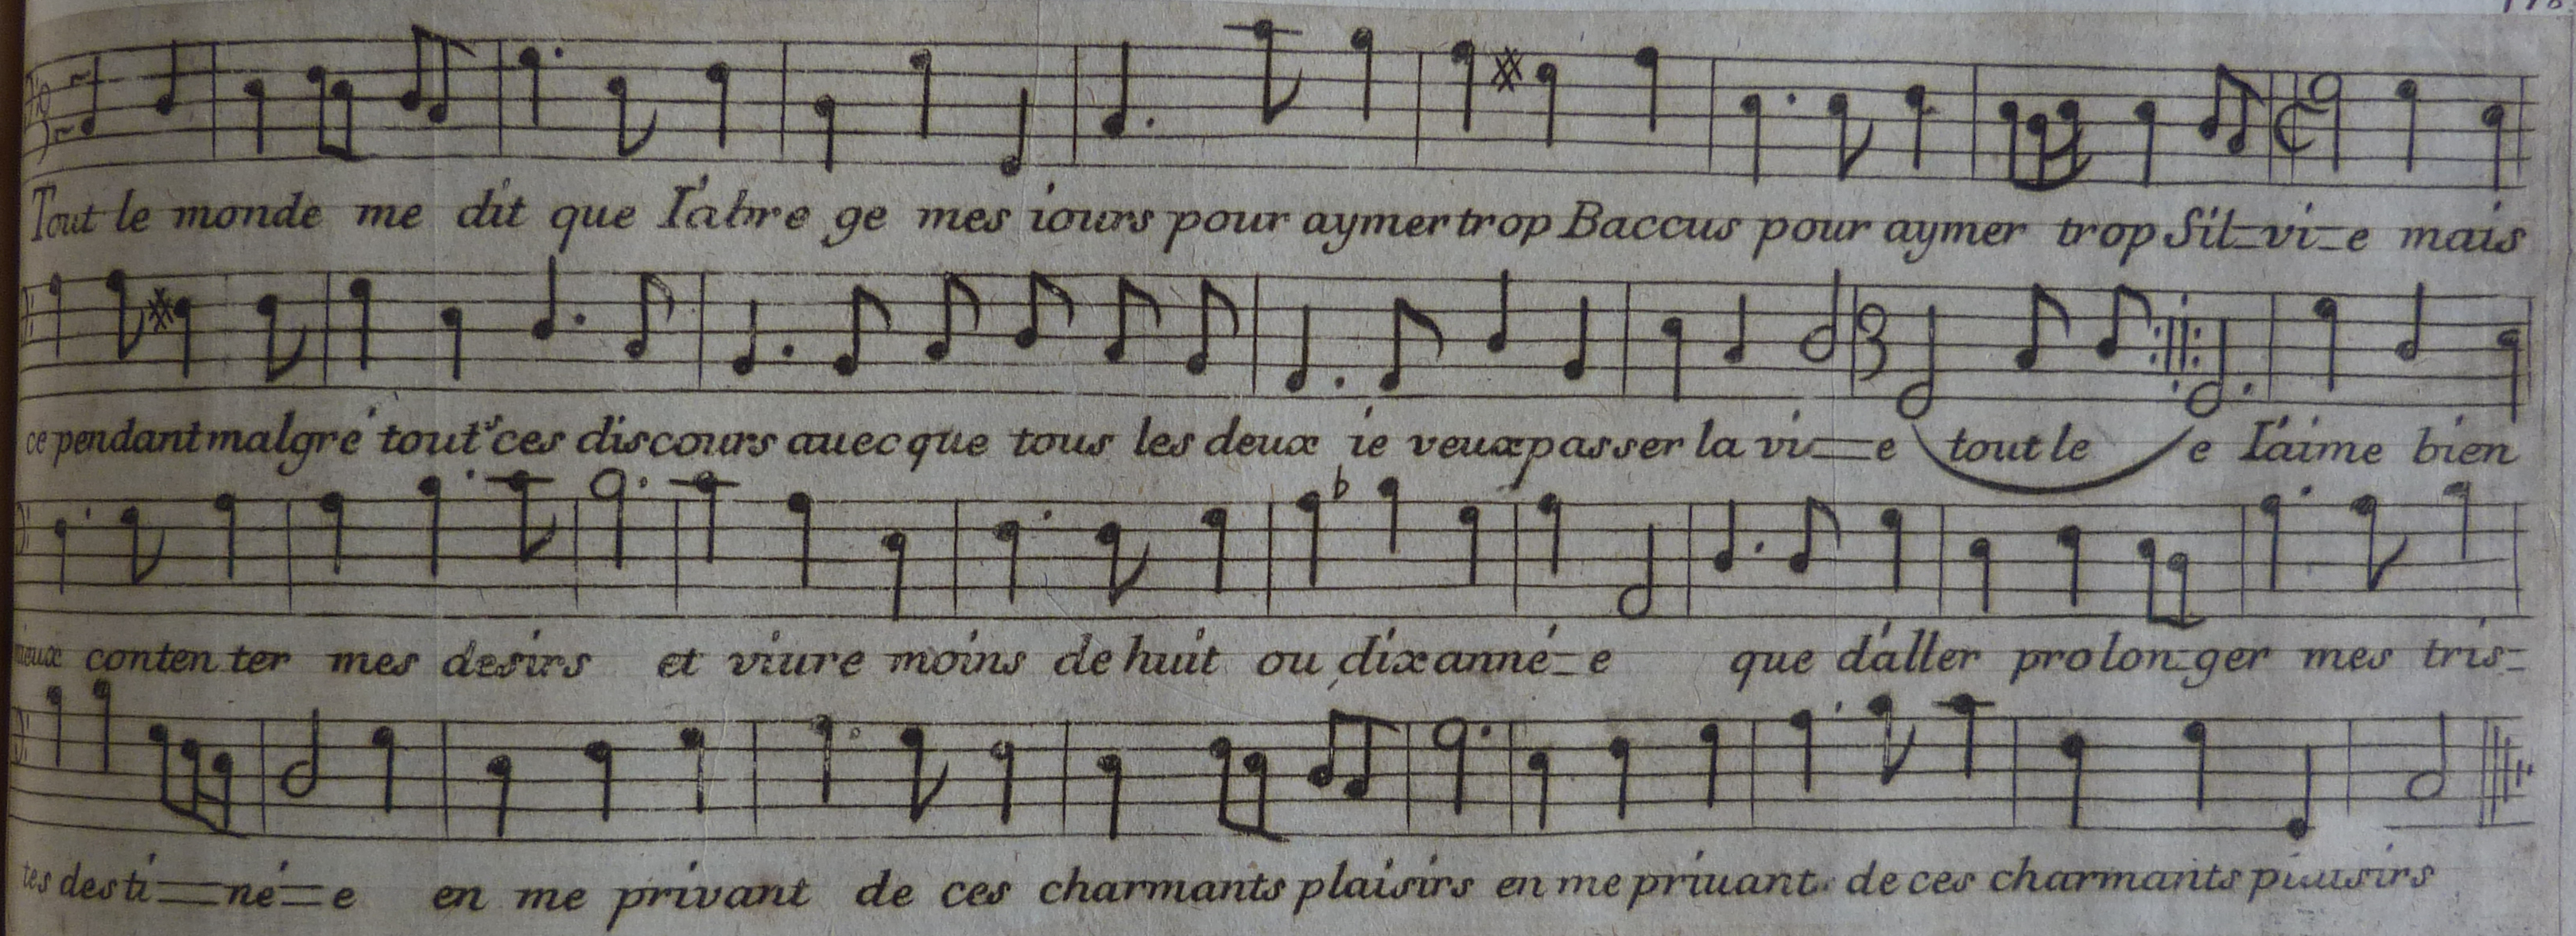 Tout le monde me dit que I'abre ge mes iours pour aymer trop Baccus pour aymer trop Sil=vi=e mais
ce pendant malgré tout's ces discours auec que tous les deux ie veux passer la vi=e tout le e I'aime bien
mieux conten ter mes desirs et viure moins de huit ou dix anné=e que d'aller pro lon=ger mes tris=
tes desti=né=e en me privant de ces charmants plaisirs en me priuant de ces charmants plaisirs